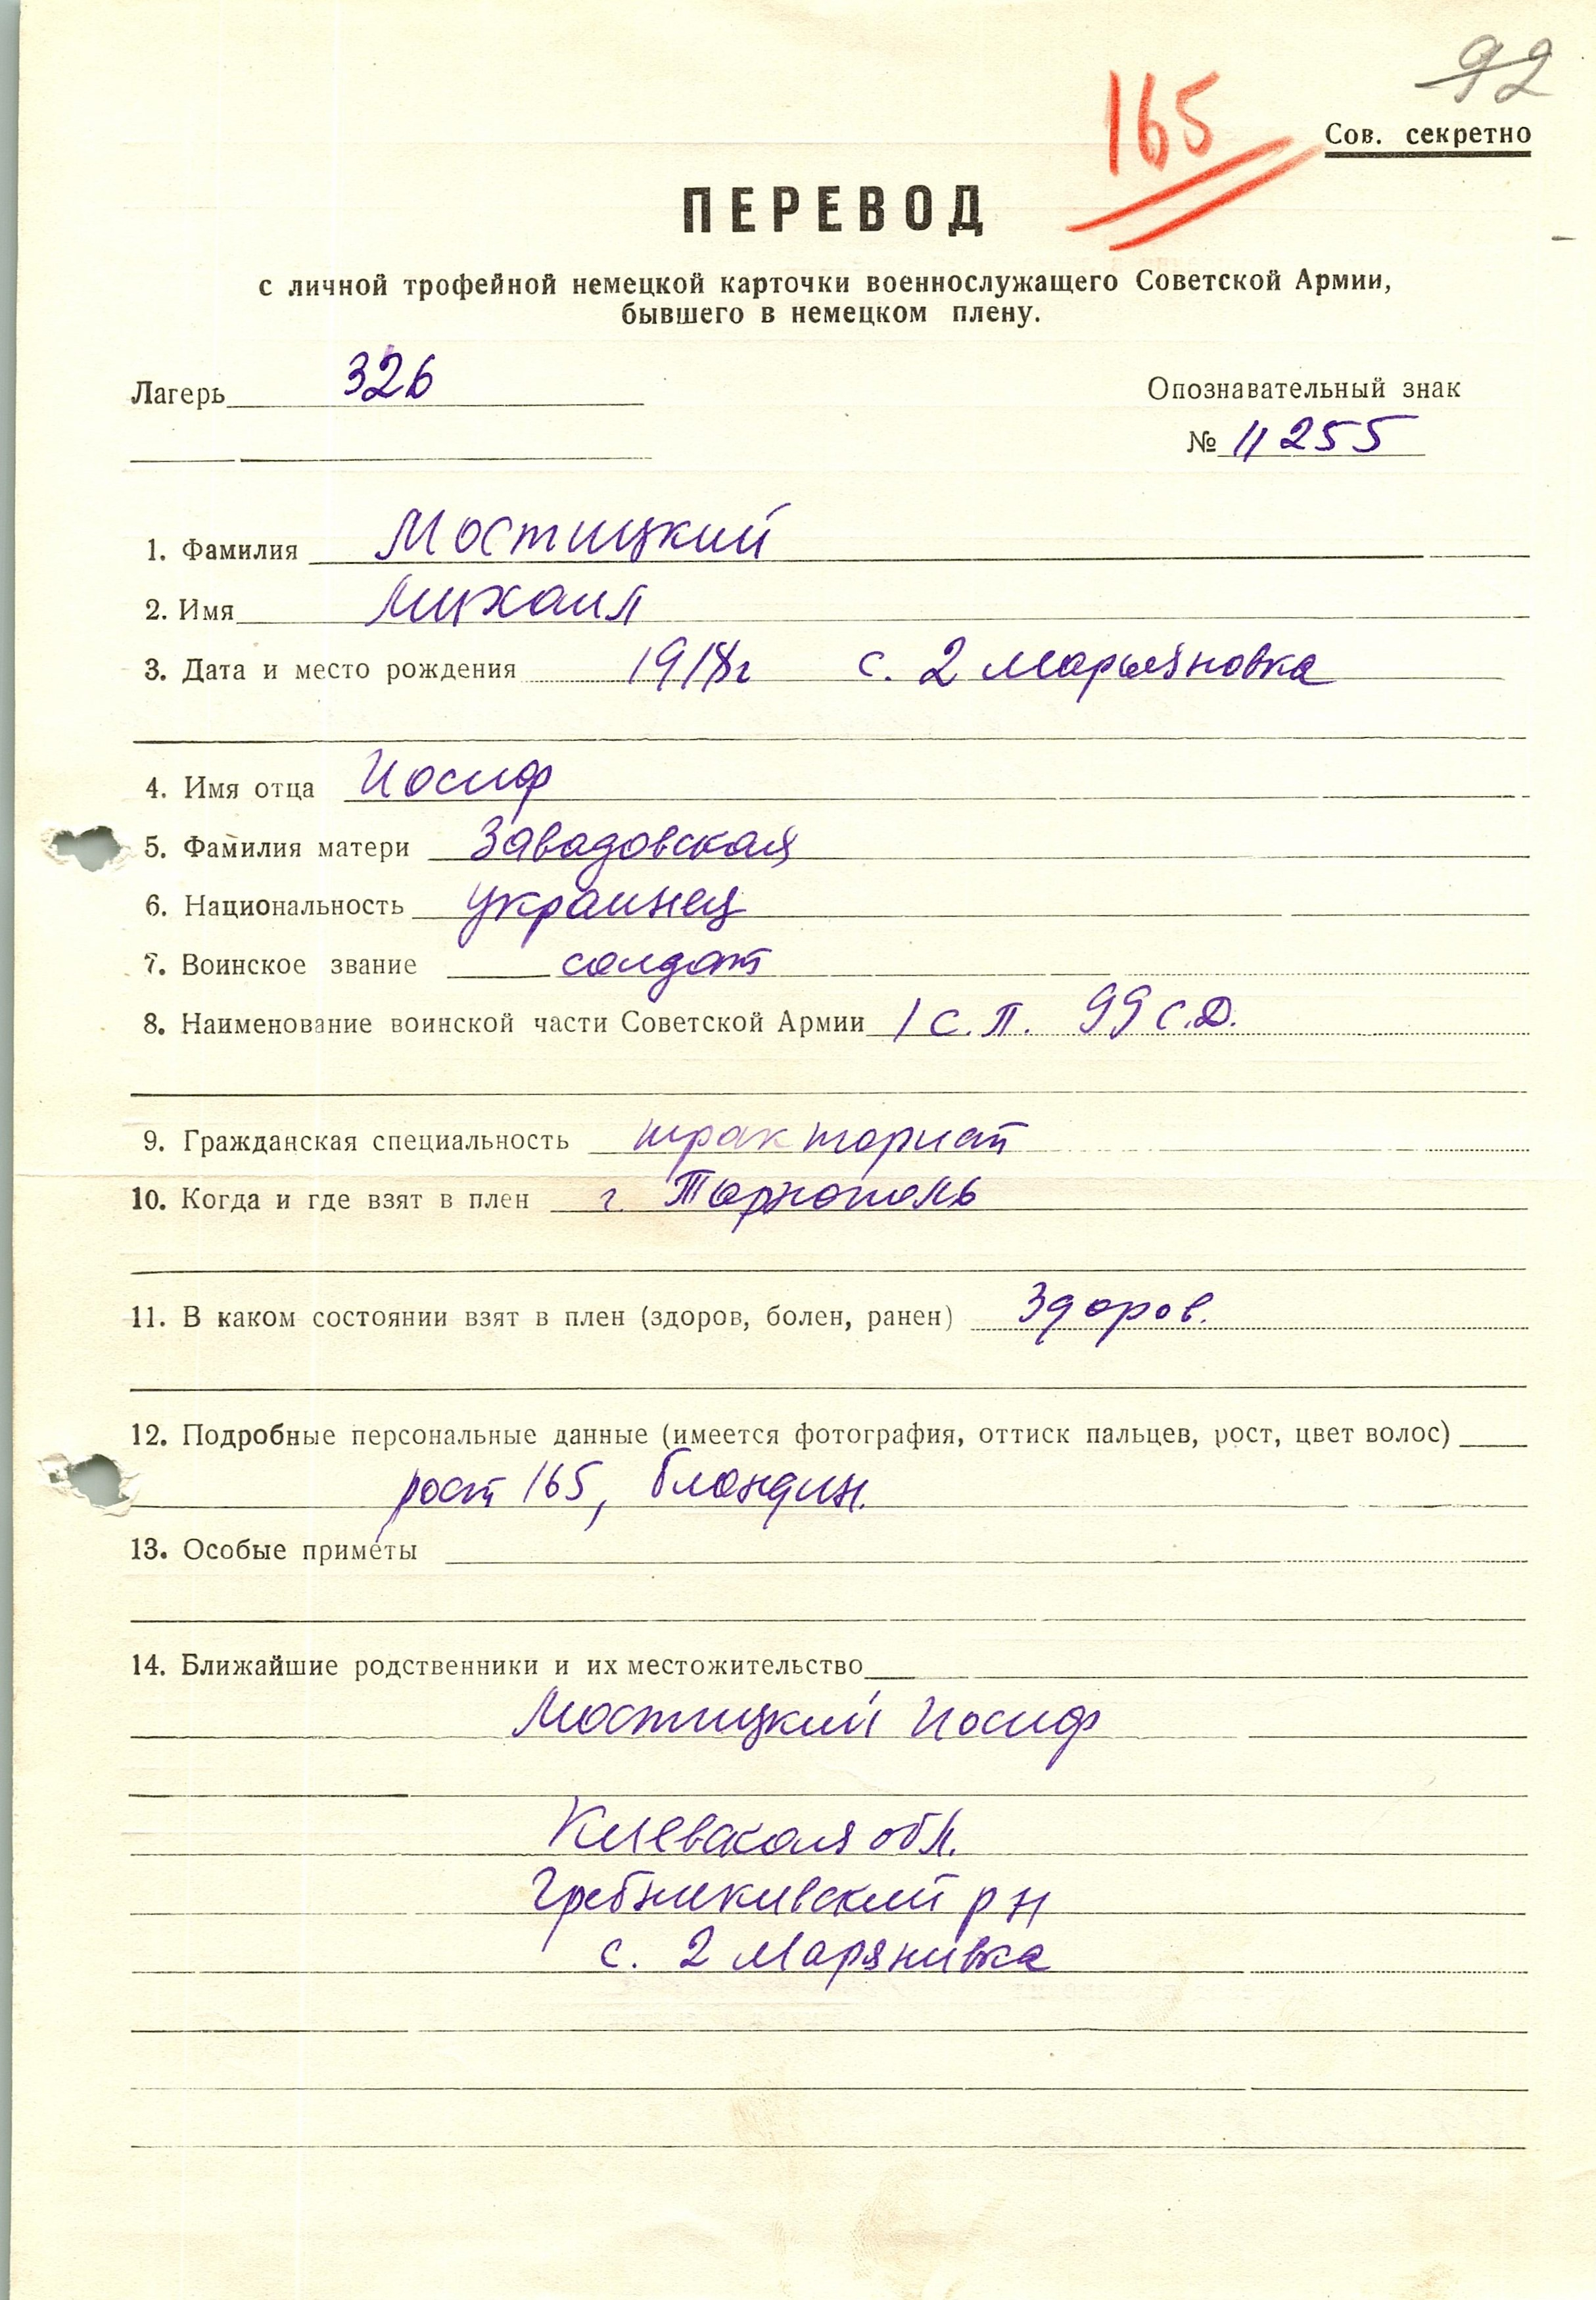 92
165
Сов. секретно
ПЕРЕВОД
с личной трофейной немецкой карточки военнослужащего Советской Армии,
бывшего в немецком плену.
Лагерь 326
Опознавательный знак
№ 11255
1. Фамилия Мостицкий
2. Имя Михаил
3. Дата и место рождения 1918г с. 2 Марьяновка
4. Имя отца Иосиф
5. Фамилия матери Завадовская
6. Национальность украинец
7. Воинское звание солдат
8. Наименование воинской части Советской Армии 1 с.п. 99 с.д.
9. Гражданская специальность тракторист
10. Когда и где взят в плен г. Тарнополь
11. В каком состоянии взят в плен (здоров, болен, ранен) Здоров.
12. Подробные персональные данные (имеется фотография, оттиск пальцев, рост, цвет волос)
рост 165, блондин.
13. Особые приметы
14. Ближайшие родственники и их местожительство
Мостицкий Иосиф
Киевская обл.
Гребникивский р н
с. 2 Марянивка